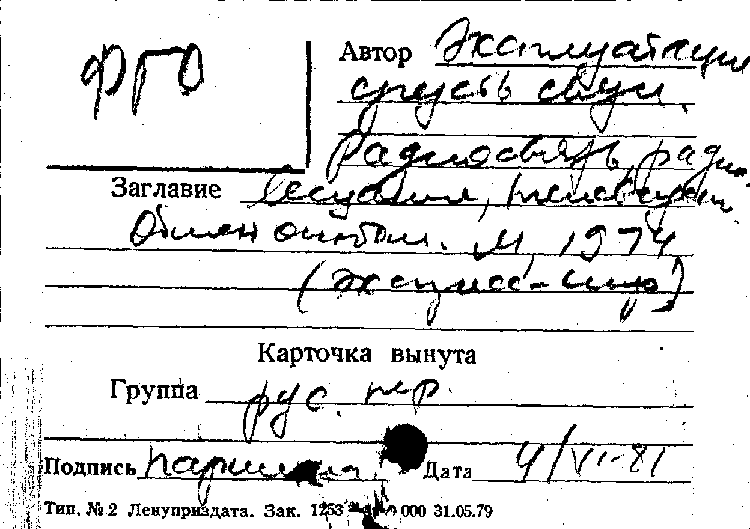 ФГО
Автор Эксплуатация
средств связи.
Радиосвязь, радио-
Заглавие вещание, телевидение.
Обмен опытом. М, 1974
(экспресс-инф)
Карточка вынута
Группа рус. пер.
Подпись Дата 4/VI-81
Тип. № 2 Ленуприздата. Зак. 1253 000 31.05.79